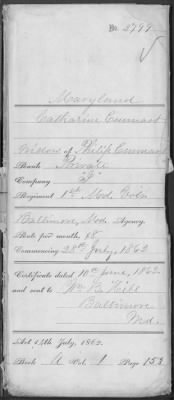 No. 2799
Maryland
Catharine Cunnart
Widow of Philip Cunnart
Rank Private
Company "I"
Regiment 1st Md. Vols.
Baltimore, Md. Agency.
Rate per month, $8
Commencing 28th July, 1862
Certificate dated 10th June, 1863
and sent to Wm B. Hill
Baltimore
Md.
Act 14th July, 1862.
Book A Vol. 1 Page 153